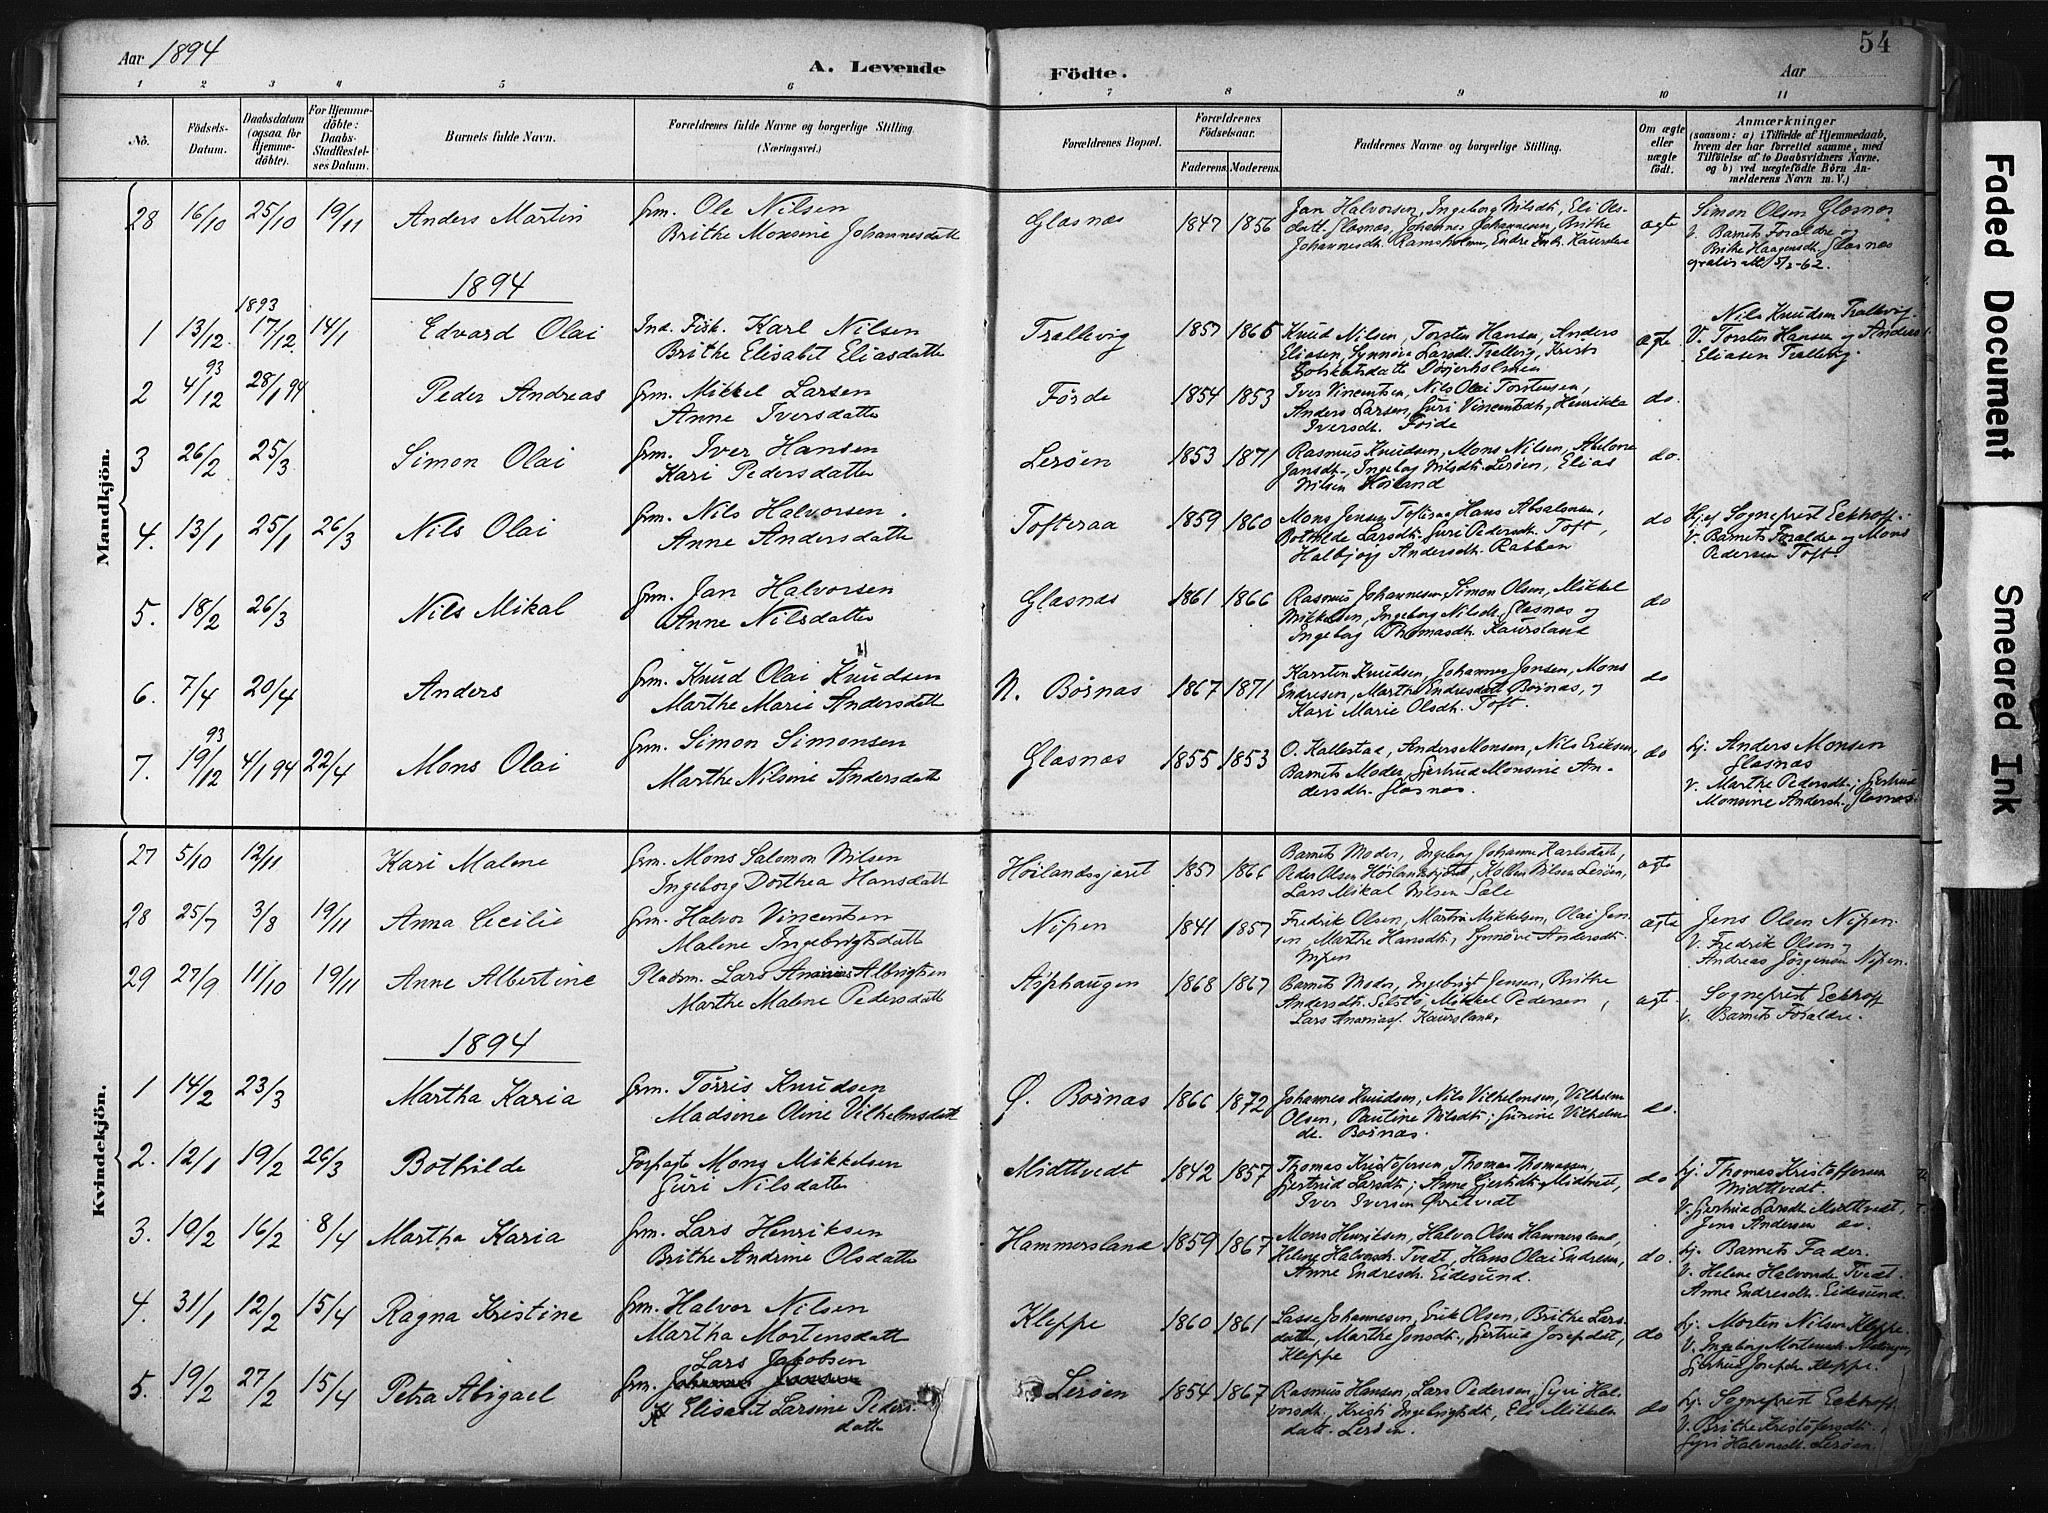 Aar 1894
A. Levende
Födte.
Aar
54
1 2 3 4 5 6 7 8 9 10 11
No.
Födsels-
Datum.
Daabsdatum
(ogsaa for
Hjemme-
döbte).
For Hjemme-
döbte:
Daabs-
Stadfæstel-
ses Datum.
Barnets fulde Navn.
Forældrenes fulde Navne og borgerlige Stilling.
(Næringsvei.)
Forældrenes Bopæl.
Forældrenes
Födselsaar.
Faderens. Moderens.
Faddernes Navne og borgerlige Stilling.
Om ægte
eller
uægte
födt.
Anmærkninger
(saasom: a) i Tilfælde af Hjemmedaab,
hvem der har forrettet samme, med
Tilföielse af to Daabsvidners Navne.
og b) ved uægtefödte Börn An-
melderens Navn m. V.)
Mandkjön.
28 16/10 25/10 19/11 Anders Martin
Grm. Ole Nilsen
Brithe Monsine Johannesdatt
Glasnæs 1847 1856
Jan Halvorsen, Ingeborg Nilsdt., Eli Ols-
datt. Glasnæs, Johannes Johannesen, Brithe
Johannesdt. Ramsholmen, Endre
ægte
Simon Olsen Glasnæs
V. Barnets Forældre og
Brithe Haagensdt. Glasnæs
gratis att. 5/2-62.
1894
1 13/12 1893 17/12 14/1 Edvard Olai
Ind. Fisk. Karl Nilsen
Brithe Elisabet Eliasdatte
Trællevig 1857 1865
Knud Nilsen, Torsten Hansen, Anders
Eliasen, Synnøve Larsdt. Trællvig, Kristi
ægte
Nils Knudsen Trællevig.
V. Torsten Hansen og Anders
Eliasen Trællevig.
2 93 4/12 28/1 94 Peder Andreas
Grm. Mikkel Larsen
Anne Iversdatte
Førde 1854 1853
Iver Vincentsen, Nils Olai Torstensen,
Anders Larsen, Guri Vincentsdt, Henrikka
Iversdt. Førde
do.
3 26/2 25/3 Simon Olai
Grm. Iver Hansen
Kari Pedersdatte
Lerøen 1853 1871
Rasmus Knudsen, Mons Nilsen, Abelone
Jansdt., Ingebor Nilsdt. Lerøen, Elias
Nilsen Høiland
do.
4. 13/1 25/1 26/3 Nils Olai
Grm. Nils Halvorsen.
Anne Andersdatte
Tofteraa 1859 1860
Mons Jensen Tofteraa, Hans Absalonsen,
Bothilde Larsdt. Guri Pedersdt. Toft,
Halbjørg Andersdt. Rabben
do
Hj. af Sogneprest Eckhoff.
V. Barnets Forældre og Mons
Pedersen Toft.
5. 18/2 26/3 Nils Mikal
Grm. Jan Halvorsen
Anne Nilsdatte
Glasnæs 1861 1866
Rasmus Johannesen, Simon Olsen, Mikkel
Mikkelsen, Ingeborg Nilsdt. Glasnæs og
Ingebog Thomasdt. Kaursland
do
6. 7/4 20/4 Anders
Grm. Knud Olai Knudsen
Marthe Marie Andersdatt
N. Børnæs 1867 1871
Karsten Knudsen, Johannes Jonsen, Mons
Endresen, Marthe Endresdatt Børnæs, og
Kari Marie Olsdt. Toft.
do
7. 93 19/12 4/1 94 22/4 Mons Olai
Grm. Simon Simonsen
Marthe Nilsine Andersdatt
Glasnæs 1855 1853
O. Kallestad, Anders Monsen, Nils Eriksen,
Barnets Moder, Gjertrud Monsine An-
dersdt. Glasnæs.
do
hj. Anders Monsen
Glasnæs
V. Marthe Pedersdt., Gjertrud
Monsine Andersdt., Glasnæs.
Kvindekjön.
27 5/10 12/11 Kari Malene
Grm. Mons Salomon Nilsen
Ingeborg Dorthea Hansdatt
Høilandssjøret 1857 1866
Barnets Moder, Ingeborg Johanne Karlsdatt,
Peder Olsen Høilandssjøret, Nilsen Lerøen,
Lars Mikal Nilsen Sæle
ægte
28 25/7 3/8 19/11 Anna Cecilie
Grm. Halvor Vincentsen
Malene Ingebrigtsdatt
Nipen 1841 1857
Fredrik Olsen, Martin Mikkelsen, Olai Jen-
sen, Marthe Hansdt., Synnøve Andersdt.
Nipen
ægte
Jens Olsen Nipen.
V. Fredrik Olsen og
Andreas Jørgensen Nipen.
29 27/9 11/10 19/11 Anne Albertine
Pladsm. Lars Ananias Albrigtsen
Marthe Malene Pedersdatt
Asphaugen 1868 1867
Barnets Moder, Ingebrigt Jensen, Brithe
Andersdt. Selstø, Mikkel Pedersen,
Lars Ananiasf. Kaursland,
ægt.
Sogneprest Eckhoff
V. Barnets Forældre.
1894
1 14/2 23/3 Martha Karia
Grm. Tørris Knudsen
Madsine Oline Vilhelmsdatt
Ø. Børnæs 1866 1872
Johannes Knudsen, Nils Vilhelmsen, Vilhelm
Olsen, Pauline Nilsdt., Gurine Vilhelms-
dt. Børnæs.
do.
2. 12/1 19/2 26/3 Bothilde
Forpagt. Mons Mikkelsen
Guri Nilsdatte
Midttvedt 1842 1857
Thomas Kristofersen, Thomas Thomassen,
Gjertrud Larsdt., Anne Midttvedt,
Iver Iversen Øvretvedt
do
hj. Thomas Kristoffersen
Midttvedt.
V. Gjertrud Larsdt. Midttvedt,
Jens Andersen do.
3. 19/2 16/2 8/4 Martha Karia
Grm. Lars Henriksen
Brithe Andrine Olsdatte
Hammersland 1859 1867
Mons Henriksen, Halvor Olsen Hammersland,
Helene Halvorsdt. Tvedt, Hans Olai Endresen,
Anne Endresdt. Eidesund.
do.
hj. Barnets Fader.
V. Helene Halvorsdt Tvedt.
Anne Endresdt. Eidesund.
4. 31/1 12/2 15/4 Ragna Kristine
Grm. Halvor Nilsen
Martha Mortensdatt
Kleppe 1860 1861
Lasse Johannesen, Erik Olsen, Brithe Lars-
datter, Marthe Jonsdt., Gjertrud Josepdtt,
Kleppe
do
hj. Morten Nilsen Kleppe.
V. Ingeborg Mortensdt.
Gjertrud Josepdt. Kleppe.
5. 19/2 27/2 15/4 Petra Abigael
Lars Jakobsen
Grm.
Elisabet Larsine Peders-
datte
Lerøen 1854 1867
Rasmus Hansen, Lars Pedersen, Gyri Hal-
vorsdt., Kristi Ingebrigtsdt., Eli Mikkels-
datt. Lerøen.
do
hj. Sogneprest Eckhoff.
V. Brithe Kristofersdt.,
Gyri Halvorsdt. Lerøen.
Faded Document
Smeared Ink